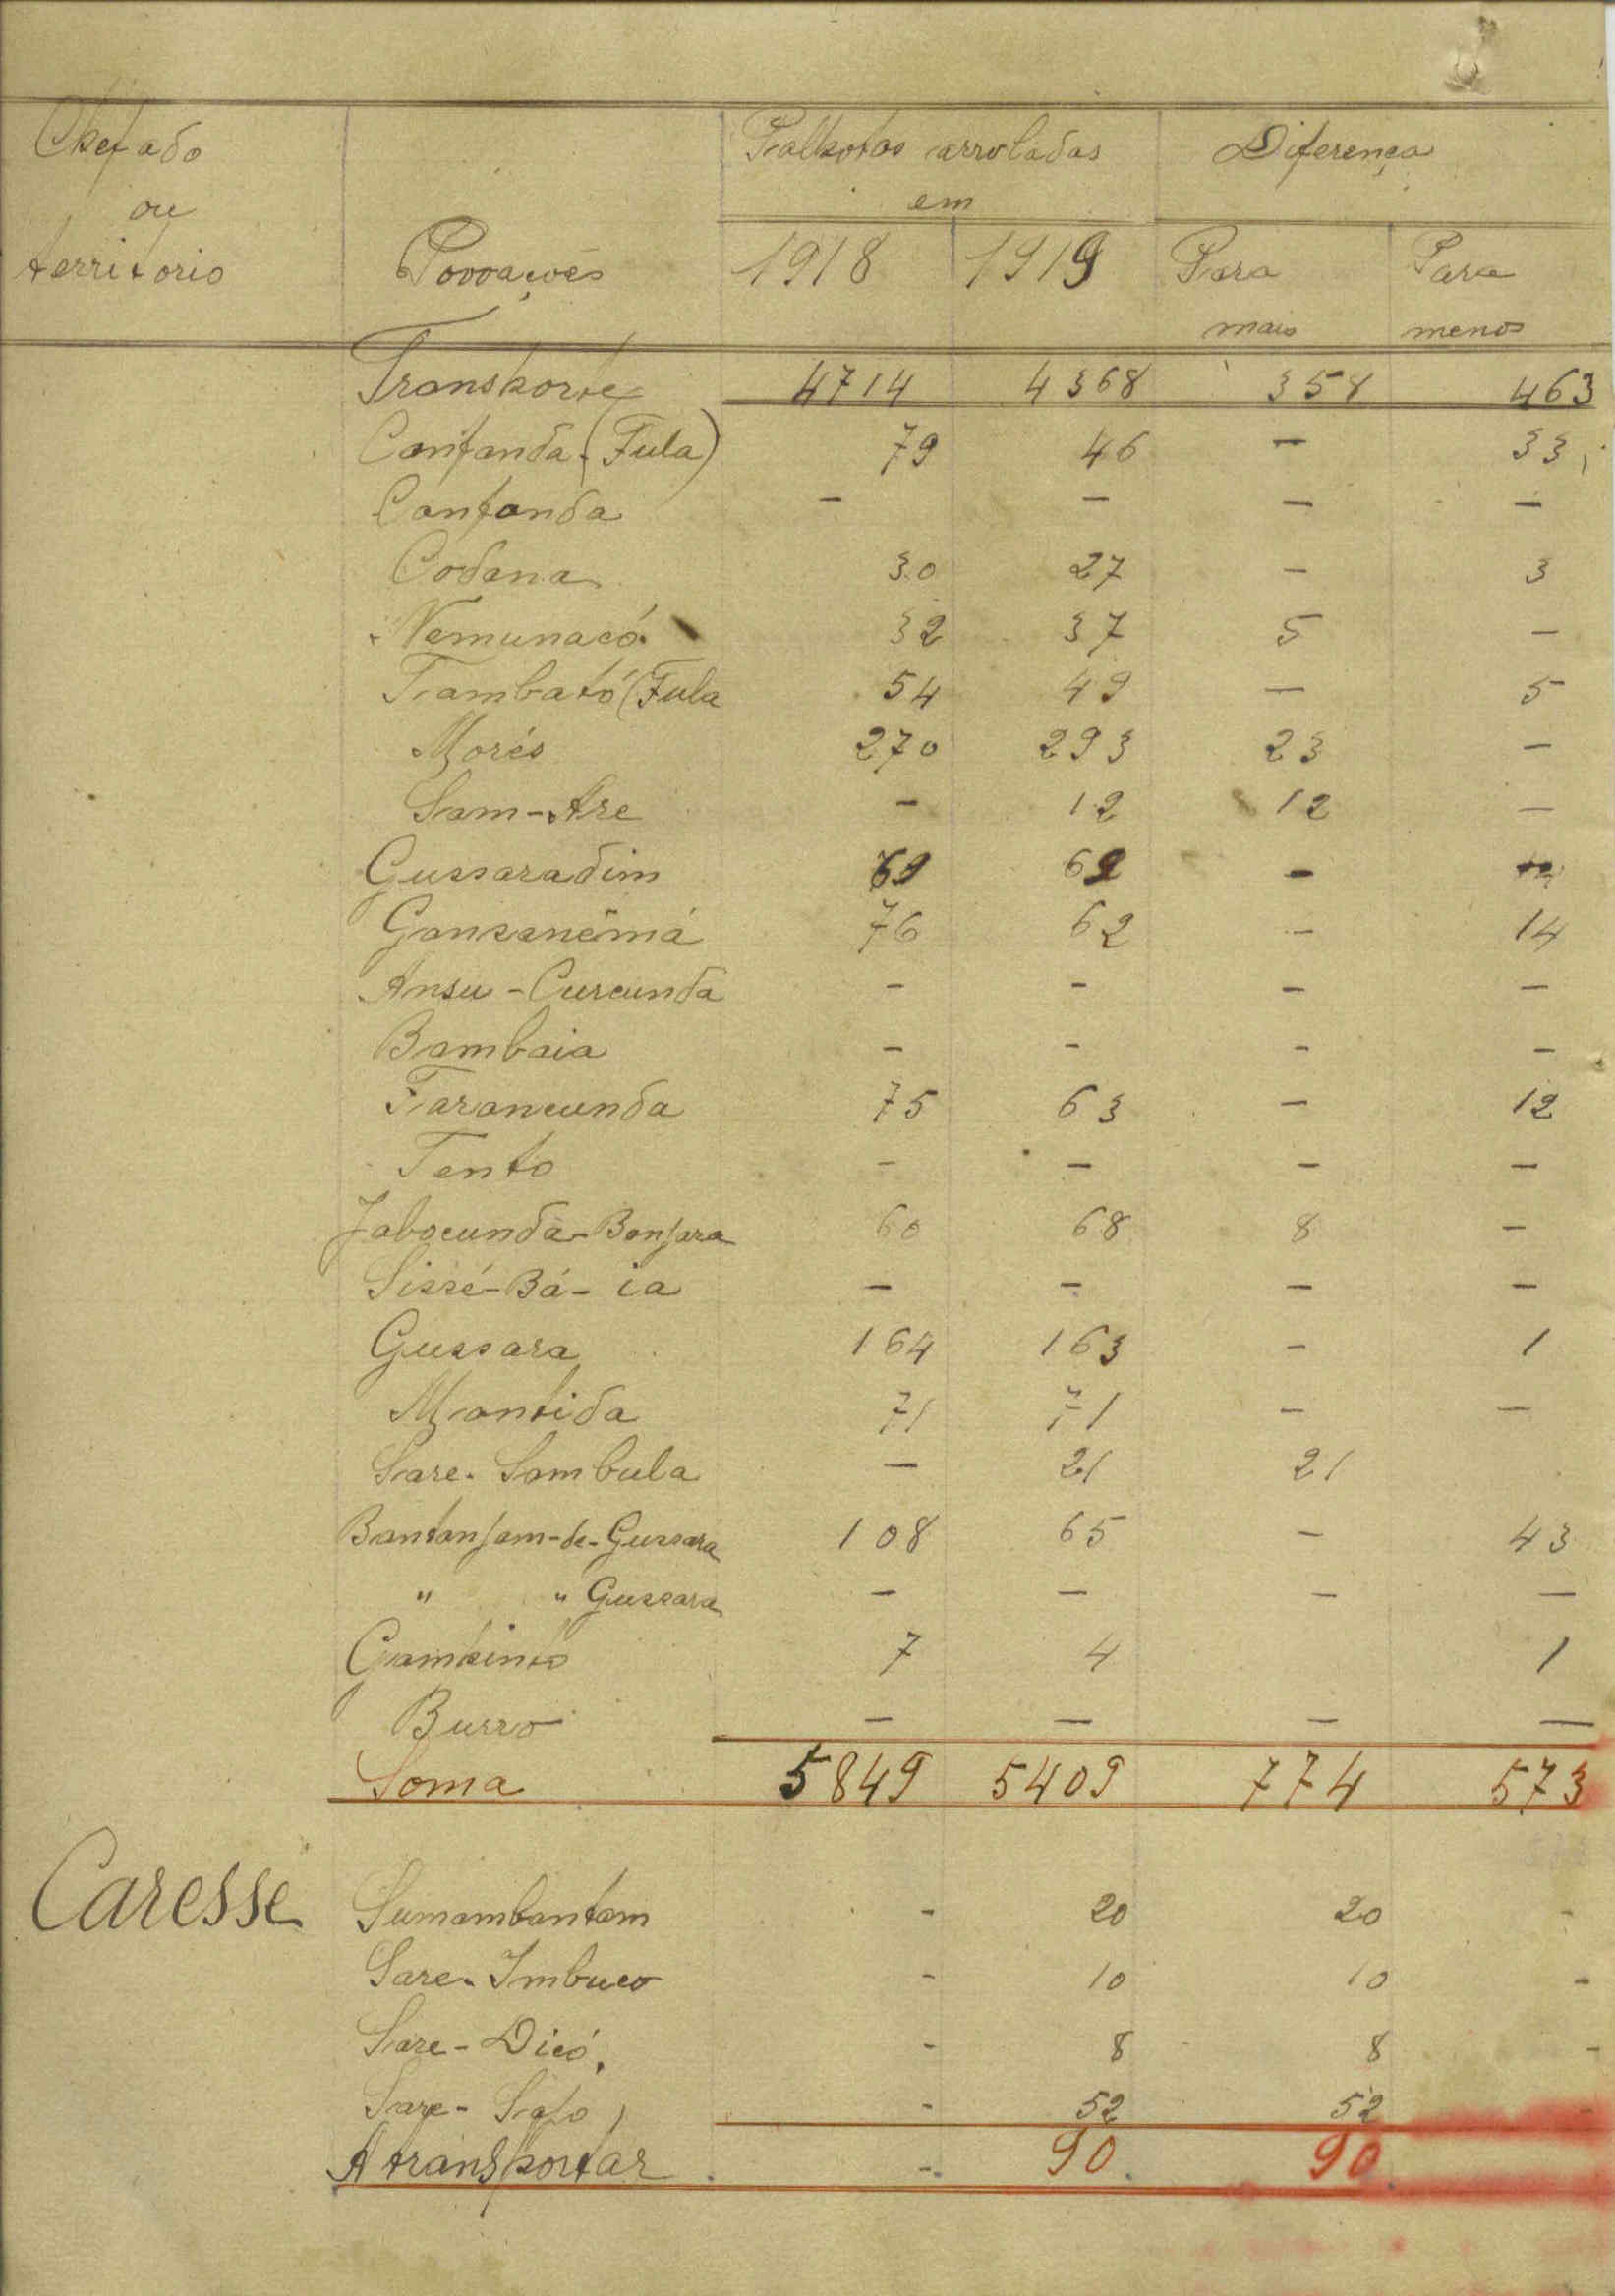 Chefado ou territorio | Povoações | Palhotas arroladas em | Diferença
1918 | 1919 | Para mais | Para menos
Transporte 4714 4368 358 463
Canfanda (Fula) 79 46 - 33
Canfanda - - - -
Codana 30 27 - 3
Nemunacó 32 37 5 -
Tambató (Fula 54 49 - 5
Morés 270 293 23 -
Sam-Are - 12 12 -
Gussaradim 69 69 -
Gansanemá 76 62 - 14
Ansu-Curcunda - - - -
Bambaia - - - -
Farancunda 75 63 - 12
Tento - - - -
Jabocunda-Banjara 60 68 8 -
Sissé-Bá-ia - - - -
Gussara 164 163 - 1
Mantida 71 71 - -
Sare-Sambula - 21 21
Bantanjam-de-Gussara 108 65 - 43
" " Gussara - - - -
7 4 1
Burro - - - -
Soma 5849 5409 774 573
Caresse Sumambantam - 20 20 -
Sare-Imbuco - 10 10 -
Sare-Dicó - 8 8 -
Sare- - 52 52 -
A transportar - 90 90